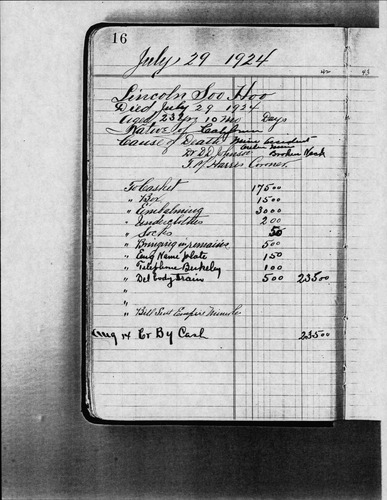 16
July 29 1924
42 43
Lincoln Soo Hoo
Died July 29 1924
Aged 23 yrs 10 mo Days
Native of California
Cause of Death Mine Accident
Dr D Johnson Broken Neck
Harris Coroner
To Casket 175 00
" Box 15 00
" Embalming 30 00
" Underclothes 2 00
" Socks 50
" Bringing in remains 5 00
" Eng Name plate 1 50
" Telephone Berkeley 1 00
" Del Body Train 5 00 235 00
"
"
" Bill Sent Empire Mines
Aug 14 Cr By Cash 235 00